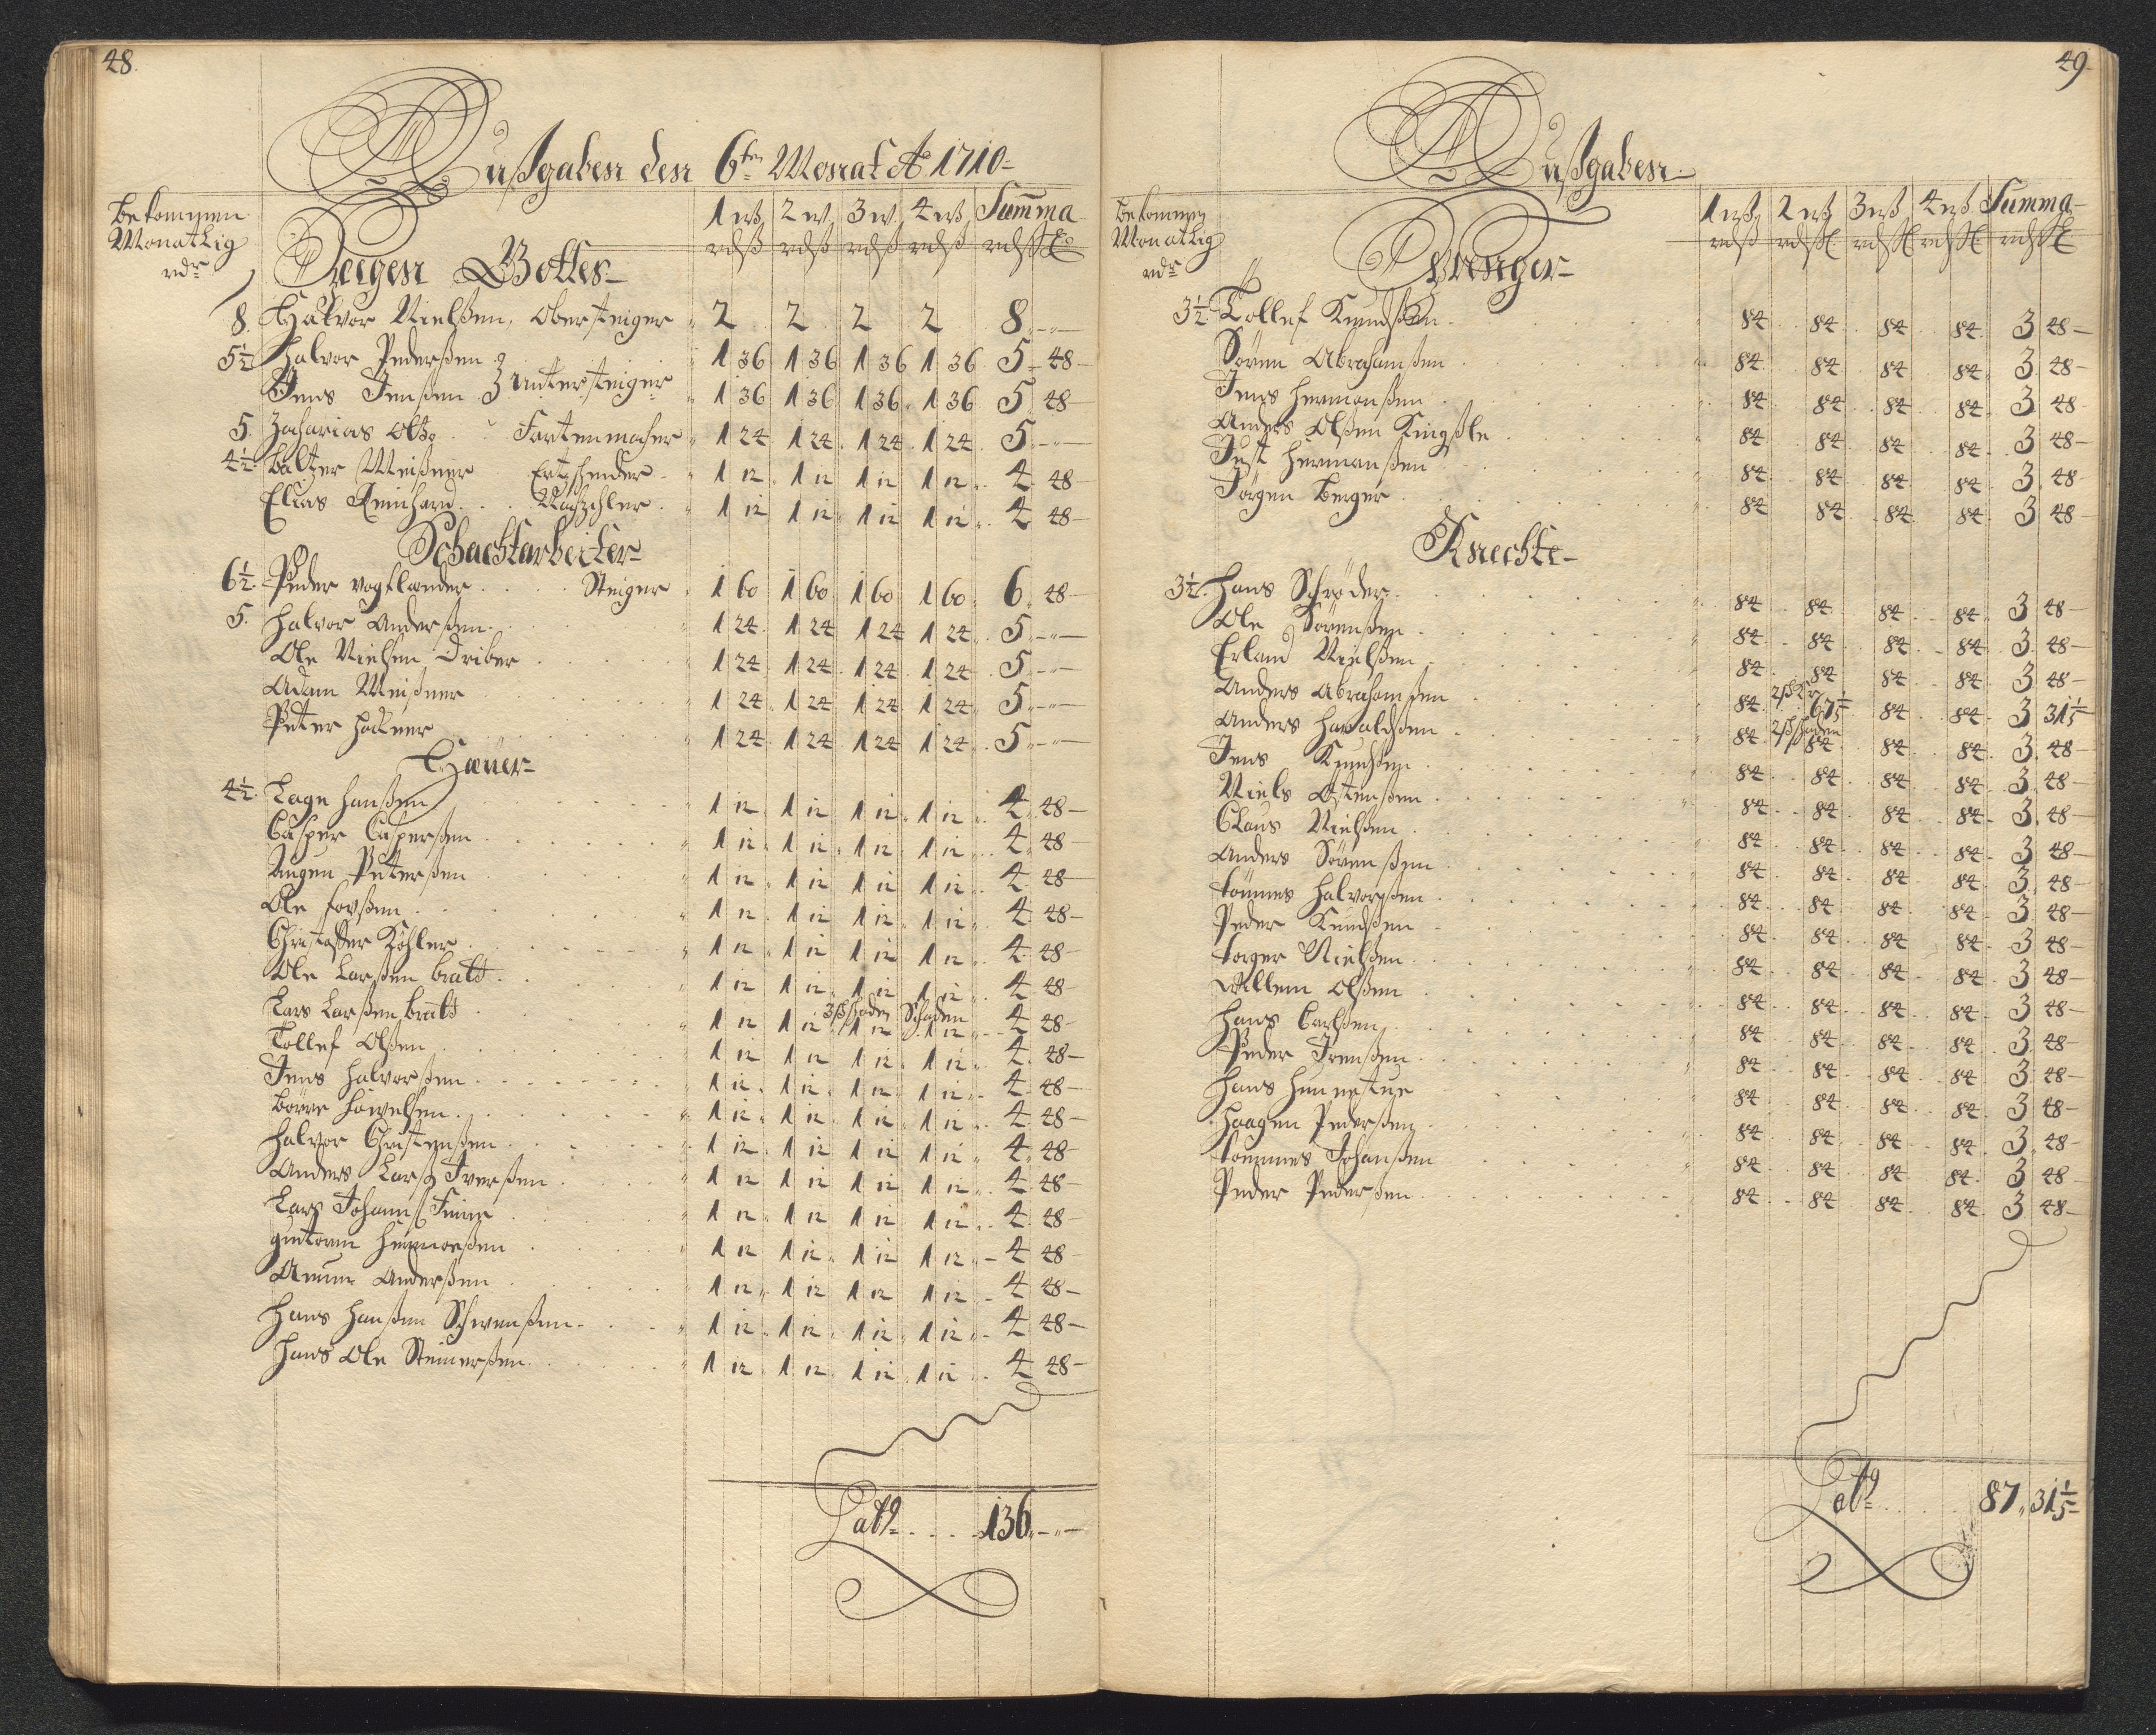 48.
Außgaben den 6ten Monat Ao 1710
bekommen Monatlig rdr
1 wß 2 w. 3 w. 4 wß Summa
rdß rdß rdß rdß rdß
Seegen Gottes
8. Halvor Nielßen, Obersteiger 2 2 2 2 8 - -
5½ Halvor Pederßen 1 36 1 36 1 36 1 36 5 48
Jens Jenßen Untersteiger 1 36 1 36 1 36 1 36 5 48
5. Zacharias 1 24 1 24 1 24 1 24 5 - -
4½ Baltzer Meißner Ertzscheider 1 12 1 12 1 12 1 12 4 48
Elias Reinhard 1 12 1 12 1 12 1 12 4 48
Schachtarbeiter
6½ Peder Vogtlander Steiger 1 60 1 60 1 60 1 60 6 48
5. Halvor Anderßen 1 24 1 24 1 24 1 24 5 - -
Ole Nielsen Driber 1 24 1 24 1 24 1 24 5 - -
Adam Meißner 1 24 1 24 1 24 1 24 5 - -
Peter 1 24 1 24 1 24 1 24 5 - -
Häuer
4½ Lage Hanßen 1 12 1 12 1 12 1 12 4 48
Casper Casperßen 1 12 1 12 1 12 1 12 4 48
Peterßen 1 12 1 12 1 12 1 12 4 48
Ole 1 12 1 12 1 12 1 12 4 48
Christoffer Köhler 1 12 1 12 1 12 1 12 4 48
Ole Larßen bratt 1 12 1 12 1 12 1 12 4 48
3 ß schaden Schaden
Lars Larßen bratt 1 12 1 12 1 12 1 12 4 48
Tollef Olßen 1 12 1 12 1 12 1 12 4 48
Jens Halvorßen 1 12 1 12 1 12 1 12 4 48
1 12 1 12 1 12 1 12 4 48
Halvor Christenßen 1 12 1 12 1 12 1 12 4 48
Anders Larß Iverßen 1 12 1 12 1 12 1 12 4 48
Lars Johanns 1 12 1 12 1 12 1 12 4 48
1 12 1 12 1 12 1 12 4 48
Anderßen 1 12 1 12 1 12 1 12 4 48
Hans Hanßen Schwenßen 1 12 1 12 1 12 1 12 4 48
Hans Ole Steinerßen 1 12 1 12 1 12 1 12 4 48
Latg 136 - -
49
Außgaben
bekommen Monatlig rdr
1 wß 2 wß 3 wß 4 wß Summa
rdß rdß rdß rdß rdß
Drenger
3½ Tollef Knudßen 84 84 84 84 3 48
Sören Abrahamßen 84 84 84 84 3 48
Jens Hermanßen 84 84 84 84 3 48
Anders Olßen Kingßle 84 84 84 84 3 48
Just Hermanßen 84 84 84 84 3 48
Jörgen Berger 84 84 84 84 3 48
Knechte
3½ Hans Schröder 84 84 84 84 3 48
Ole Sörenßen 84 84 84 84 3 48
Erland Nielßen 84 84 84 84 3 48
Anders Abrahamßen 84 67⅕ 84 84 3 31⅕
2 ß schaden
Anders Haraldßen 84 84 84 84 3 48
Jens Knudßen 84 84 84 84 3 48
Niels Ostenßen 84 84 84 84 3 48
Claus Nielßen 84 84 84 84 3 48
Anders Sörenßen 84 84 84 84 3 48
Tönnes Halvorßen 84 84 84 84 3 48
Peder Knudßen 84 84 84 84 3 48
Torger Nielßen 84 84 84 84 3 48
Willem Olßen 84 84 84 84 3 48
Hans Carlßen 84 84 84 84 3 48
Peder Irenßen 84 84 84 84 3 48
Hans 84 84 84 84 3 48
Haagen Pederßen 84 84 84 84 3 48
Tommes Johanßen 84 84 84 84 3 48
Peder Pederßen 84 84 84 84 3 48
Latg 87 31⅕